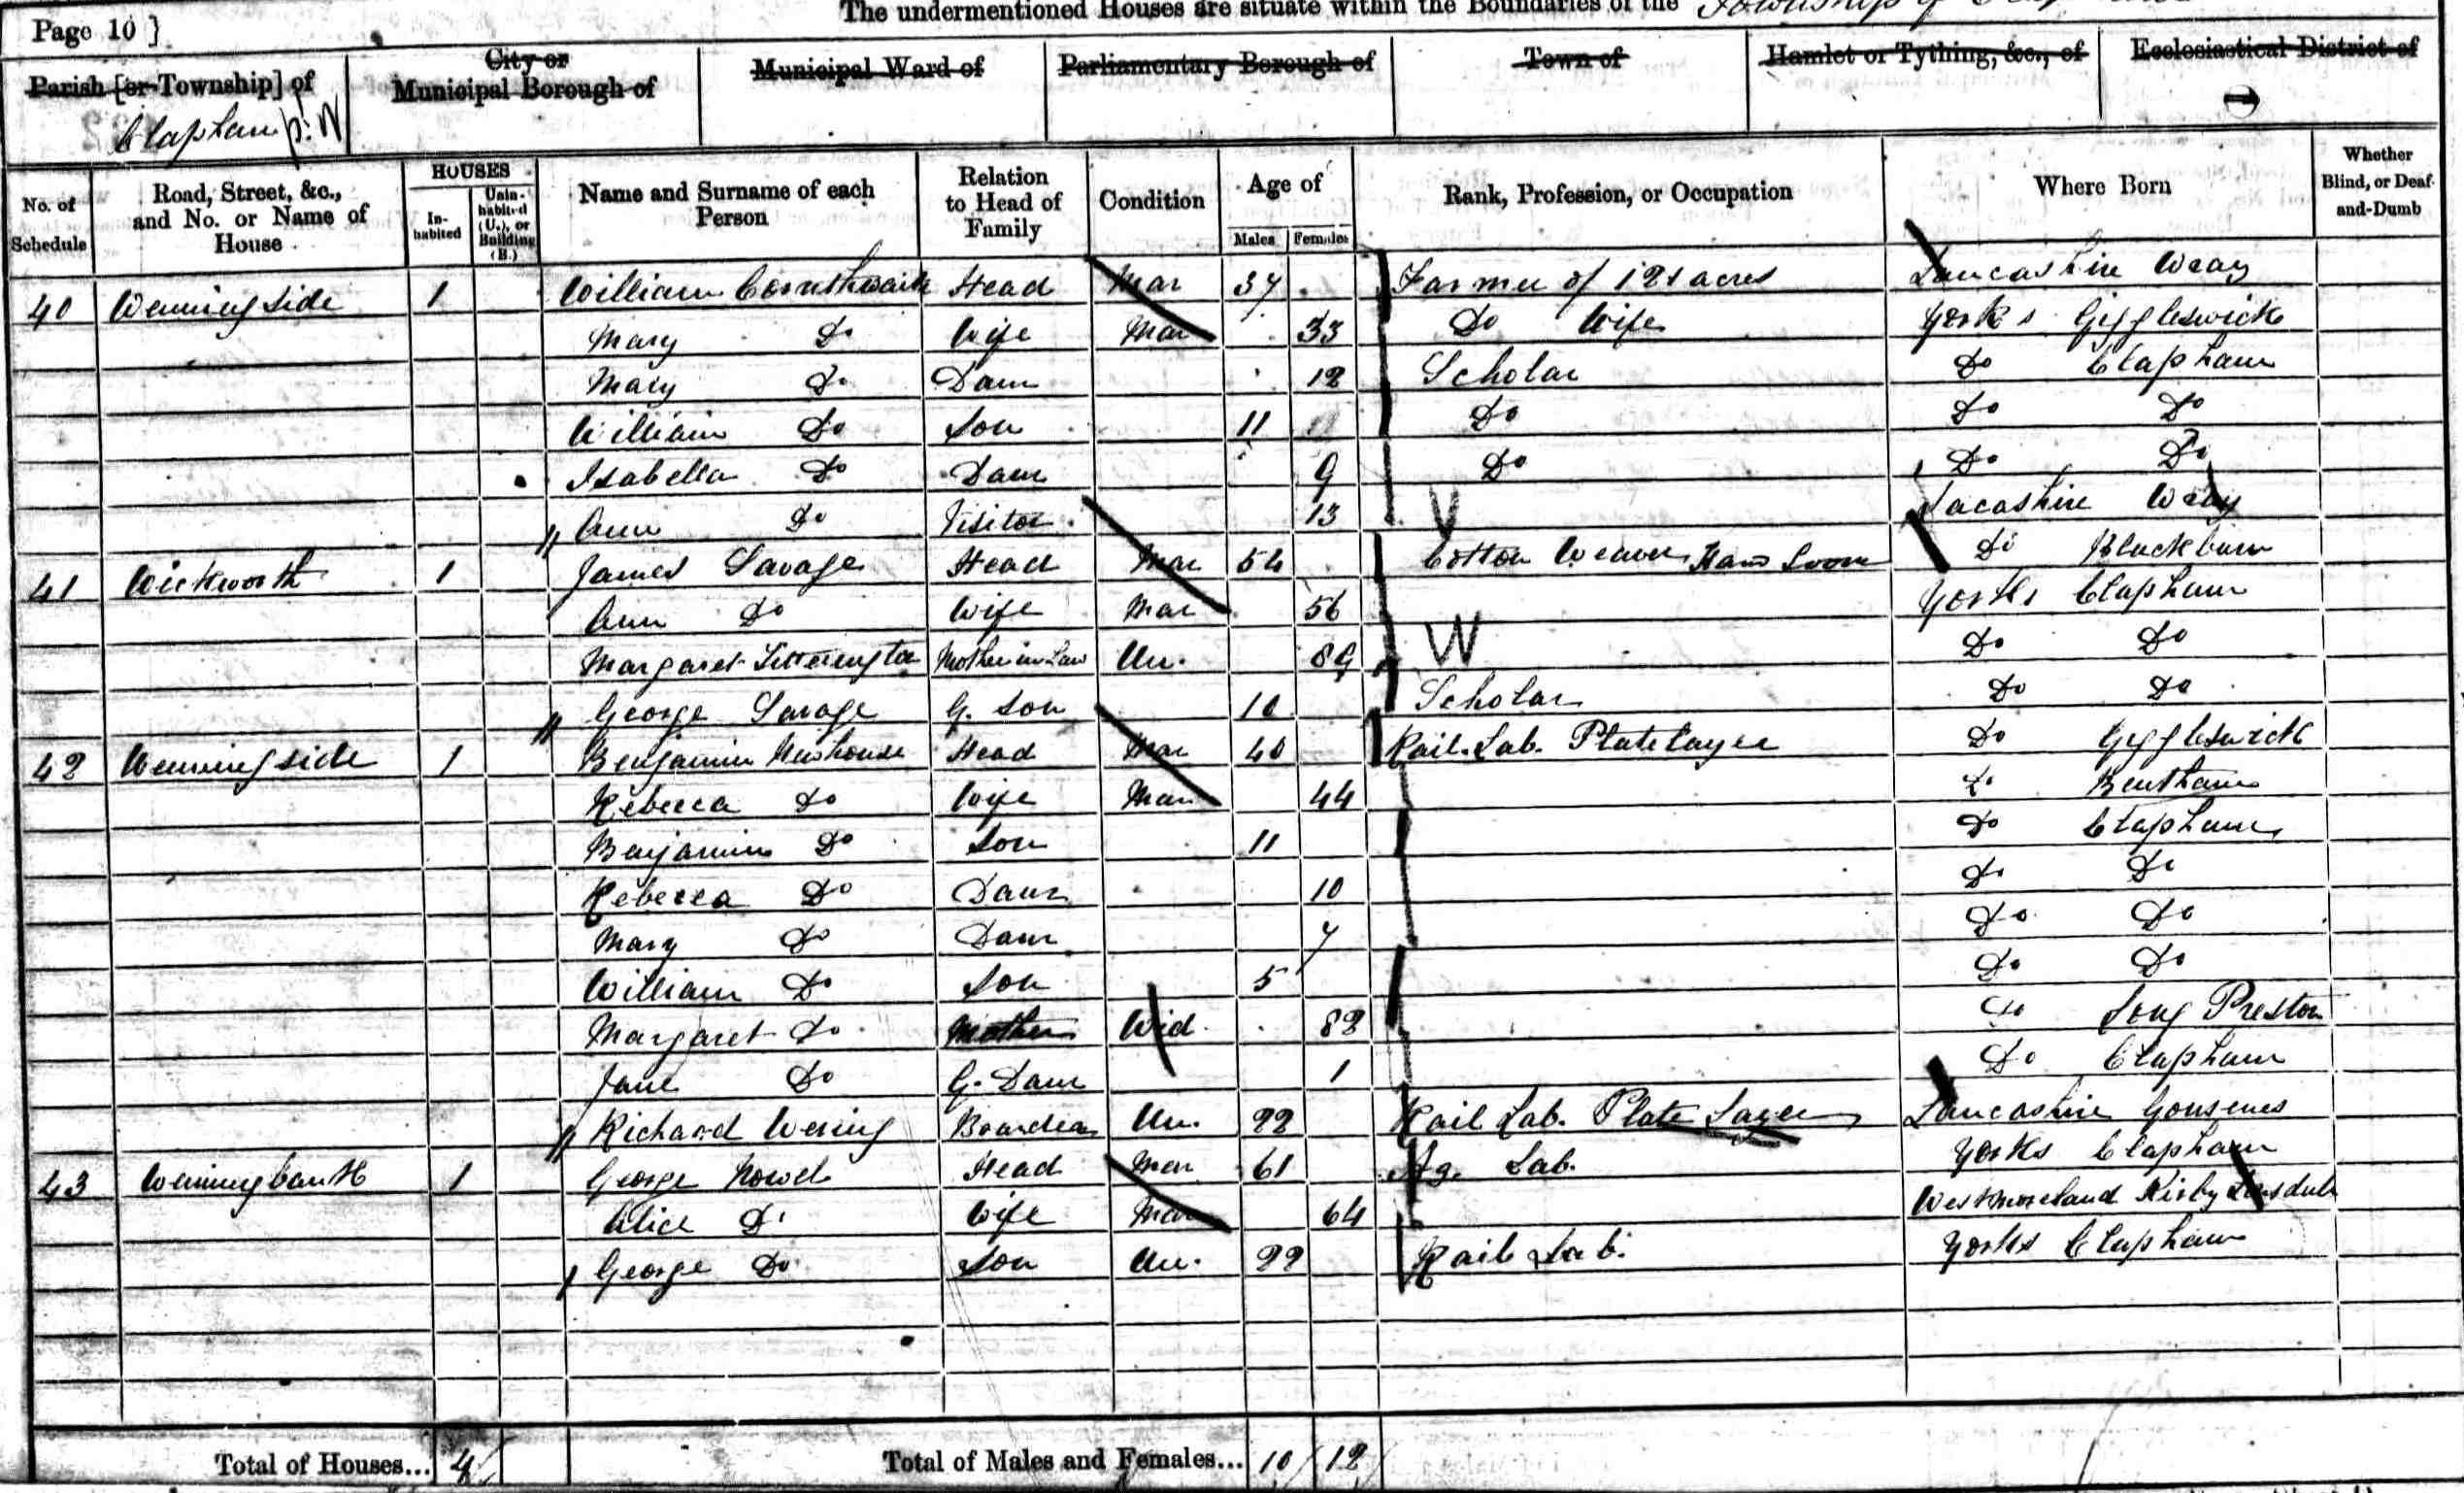 The undermentioned Houses are situate within the Boundaries of the Township of
Page 10 ]
Parish [or Township] of
Clapham
City or Municipal Borough of
Municipal Ward of
Parliamentary Borough of
Town of
Hamlet or Tything, &c., of
Ecclesiastical District of
No. of Schedule Road, Street, &c., and No. or Name of House HOUSES In-habited Unin-habited (U.), or Building (B.) Name and Surname of each Person Relation to Head of Family Condition Age of Males Females Rank, Profession, or Occupation Where Born Whether Blind, or Deaf-and-Dumb
40 Wenningside 1 William Cornthwaite Head Mar 37 Farmer of 121 acres Lancashire Wray
Mary Do Wife Mar 33 Do Wife Yorks Giggleswick
Mary Do Daur 12 Scholar Do Clapham
William Do Son 11 Do Do Do
Isabella Do Daur 9 Do Do Do
Ann Do Visitor 13 V Lacashire Wray
41 Wickworth 1 James Savage Head Mar 54 Cotton Weaver Hand Loom Do Blackburn
Ann Do Wife Mar 56 Yorks Clapham
Margaret Mother in Law Un. 89 W Do Do
George Savage G. Son 10 Scholar Do Do
42 Wenningside 1 Benjamin Newhouse Head Mar 40 Rail. Lab. Platelayer Do Giggleswick
Rebecca Do Wife Mar 44 Do Bentham
Benjamin Do Son 11 Do Clapham
Rebecca Do Daur 10 Do Do
Mary Do Daur 7 Do Do
William Do Son 5 Do Do
Margaret Do Mother Wid 82 Do Long Preston
Jane Do G. Daur 1 Do Clapham
Richard Boarder Un. 22 Rail Lab. Plate Layer Lancashire
43 Wenningbank 1 George Head Mar 61 Ag. Lab. Yorks Clapham
Alice Do Wife Mar 64 Westmoreland Kirby Lonsdale
George Do Son Un. 22 Rail Lab. Yorks Clapham
Total of Houses... 4 Total of Males and Females... 10 12